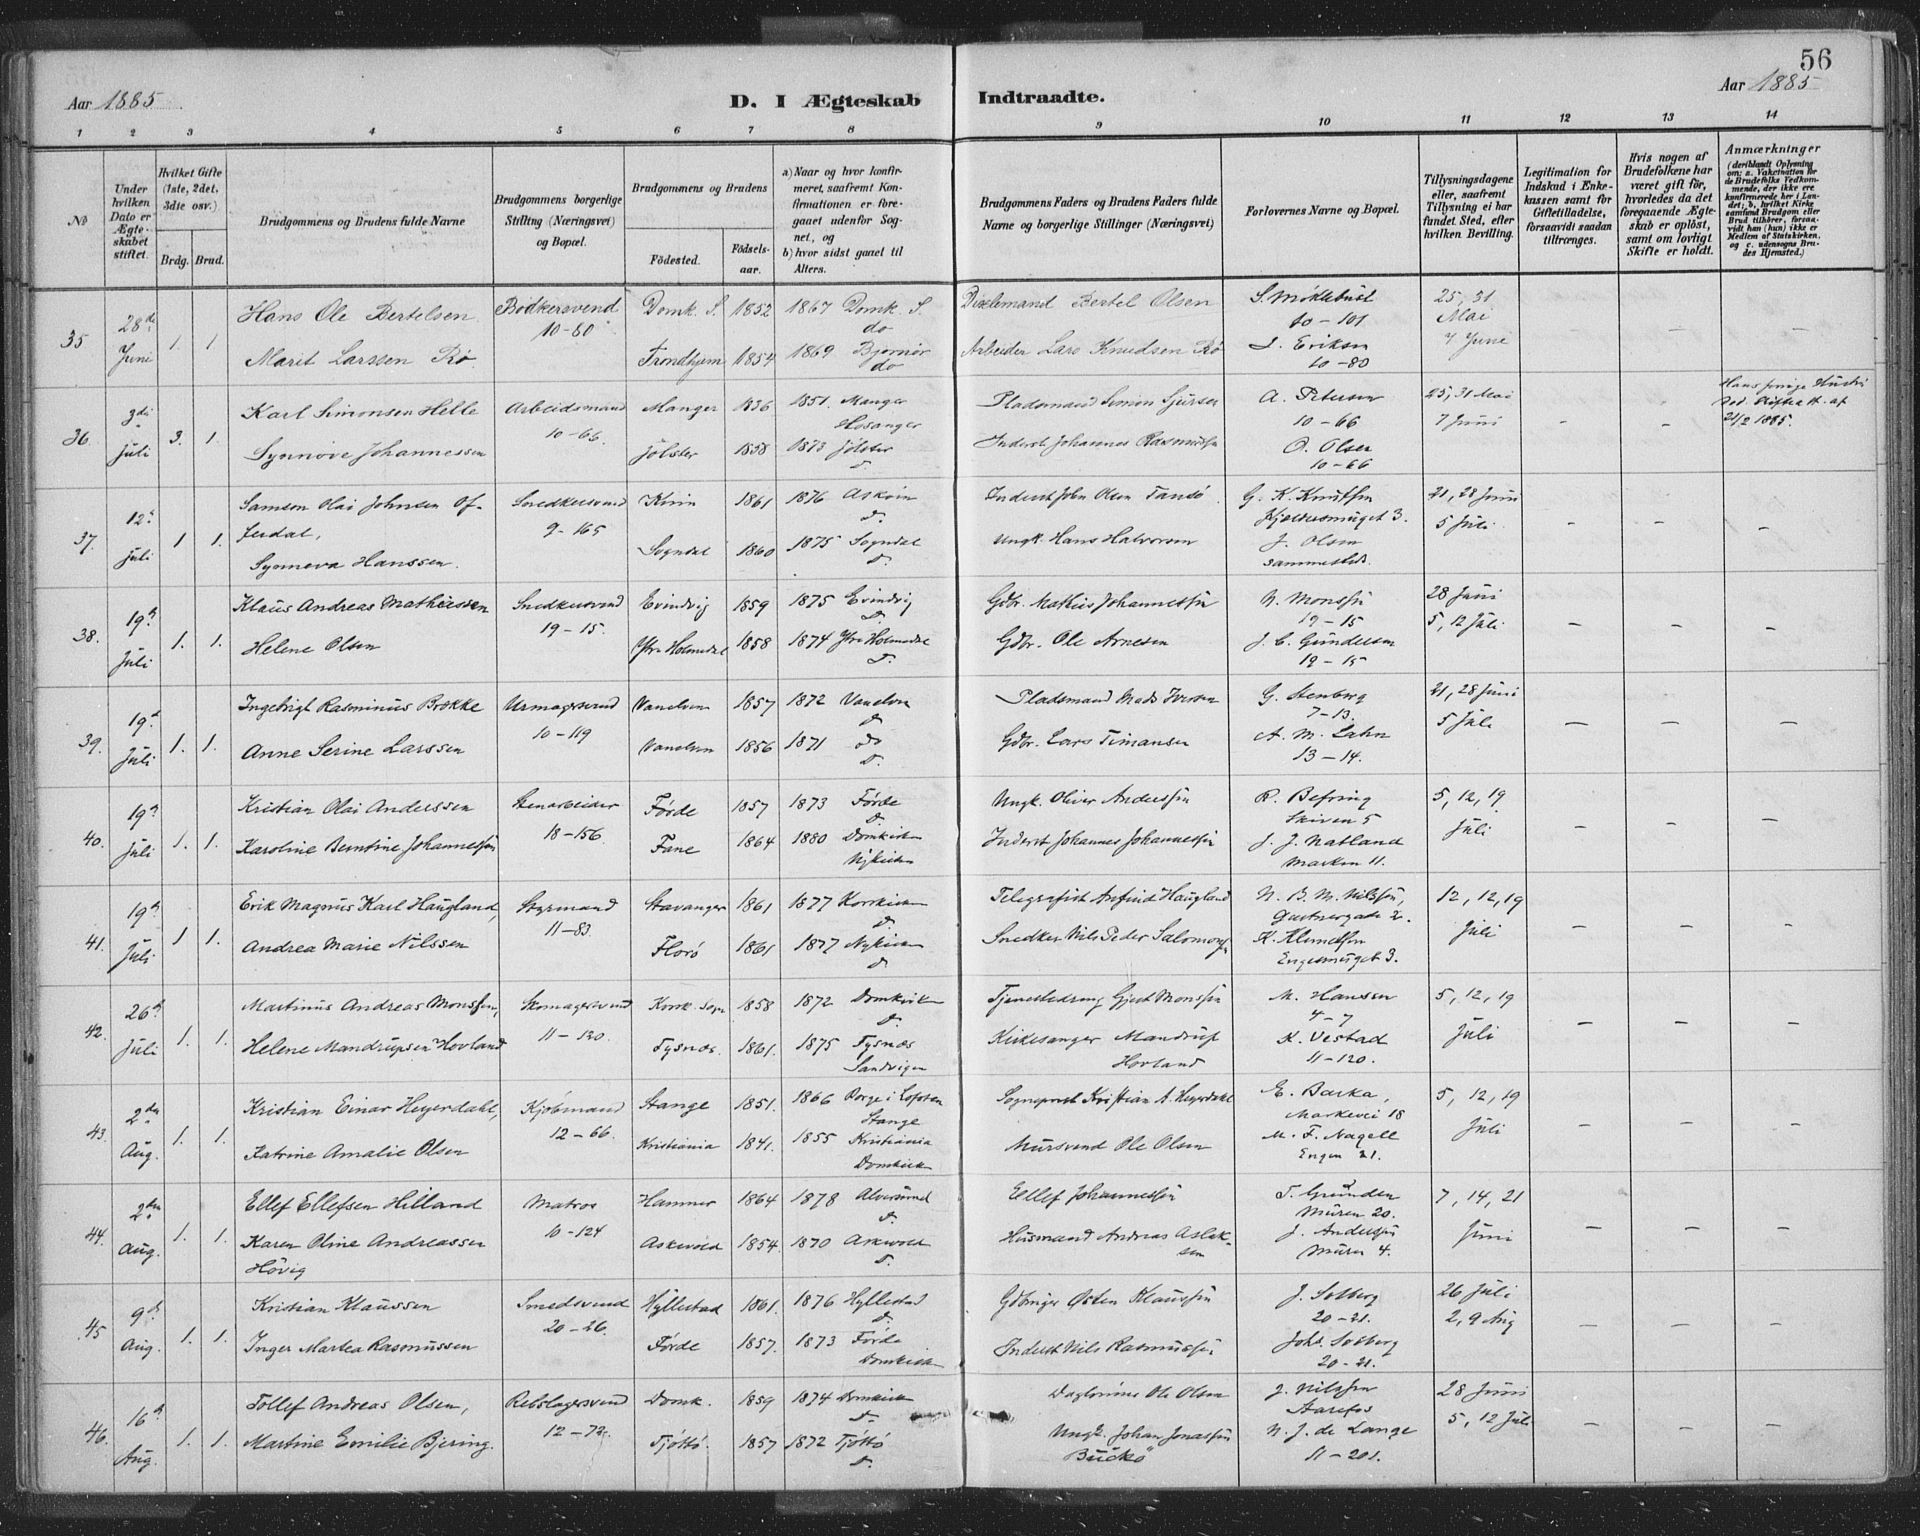 56
Aar 1885
D. I Ægteskab Indtraadte.
Aar 1885
1 2 3 4 5 6 7 8 9 10 11 12 13 14
No
Under hvilken Dato er Ægteskabet stiftet.
Hvilket Gifte (1ste, 2det, 3die osv.)
Brdg. Brud.
Brudgommens og Brudens fulde Navne
Brudgommens borgerlige Stilling (Næringsvei) og Bopæl.
Brudgommens og Brudens
Fødested. Fødselsaar.
a) Naar og hvor konfirmeret, saafremt Konfirmationen er foregaaet udenfor Sognet, og
b) hvor sidst gaaet til Alters.
Brudgommens Faders og Brudens Faders fulde Navne og borgerlige Stillinger (Næringsvei)
Forlovernes Navne og Bopæl.
Tillysningsdagene eller, saafremt Tillysning ei har fundet Sted, efter hvilken Bevilling.
Legitimation for Indskud i Enkekassen samt for Giftetilladelse, forsaavidt saadan tiltrænges.
Hvis nogen af Brudefolkene har været gift før, hvorledes da det foregaaende Ægteskab er opløst, samt om lovligt Skifte er holdt.
Anmærkninger (deriblandt Oplysning om: a. Vakcination for de Brudefolks Vedkommende, der ikke ere konfirmerede her i Landet; b. hvilket Kirkesamfund Brudgom eller Brud tilhører, forsaavidt han (hun) ikke er Medlem af Statskirken, og c. udensogns Brudes Hjemsted.)
35 28de Juni 1. 1
Hans Ole Bertelsen Bødkersvend 10-80 Domk. S. 1852 1867 Domk. S. do Bertel Olsen S. Møklebust 10-101 25, 31 Mai
Marit Larssen Rø Trondhjem 1854 1869 Bjørnør do Arbeider Lars Knudsen Rø J. Eriksen 10-80 7 Juni
36. 3die Juli 3. 1.
Karl Simonsen Helle Arbeidsmand 10-66 Manger 1836 1851 Manger Hosanger Pladsmand Simon Sjursen A. Petersen 10-66 25, 31 Mai 7 Juni
Hans forrige Hustru
21/2 1885.
Synnøve Johannessen Jølster 1838 1873 Jølster d. Inderst Johannes Rasmussen O. Olsen 10-66
37. 12te Juli 1 1.
Samson Olai Johnsen Offerdal, Snedkersvend 9-165 Kinn 1861 1876 Askvin d. Inderst John Olsen Tansø G. K. Knutsen Kjeldersmuget 3. 21, 28 Juni 5 Juli
Synneva Hanssen. Sogndal 1860 1875 Sogndal d. Ungk. Hans Halvorsen J. Olsen sammesteds.
38. 19de Juli 1. 1.
Klaus Andreas Mathiassen Snedkersvend 19-15. Evindvig 1859 1875 Evindvig d. Gdbr. Mathias Johannessen N. Monssen 19-15 28 Juni 5, 12 Juli
Helene Olsen Ytre Holmedal 1858 1874 Ytre Holmedal d. Gdbr. Ole Arnesen J. C. Gundersen 19-15
39. 19de Juli 1. 1.
Ingebrigt Rasminus Brække Urmagersvend 10-119 Vanelven 1857 1872 Vanelven d. Pladsmand Mads Iversen G. Stenberg 7-13. 21, 28 Juni 5 Juli
Anne Serine Larssen Vanelven 1856 1871 do d. Gdbr. Lars Timansen A. M. Lahn 13-14.
40. 19de Juli 1. 1.
Kristian Olai Anderssen Stenarbeider 18-156. Førde 1857 1873 Førde d. Ungk. Oliver Anderssen R. Befring Skiven 5 5, 12, 19 Juli
Karoline Berntine Johannessen Fane 1864 1880 Domkirken Nykirken Inderst Johannes Johannessen J. J. Natland Marken 11.
41. 19de Juli 1 1.
Erik Magnus Karl Haugland, Styrmand 11-83 Stavanger 1861 1877 Korskirken d. Telegrafist Anfind Haugland N. B. M. Nilssen, Gartnergade 2. 12, 12, 19 Juli
Andrea Marie Nilssen Florø 1861 1877 Nykirken d. Snedker Nils Peder Salomonsen K. Klemetsen Engesmuget 3.
42. 26de Juli 1. 1.
Martinus Andreas Monssen, Skomagersvend 11-120. Korsk. Sogn 1858 1872 Domkirken d. Tjenestedreng Gjert Monssen M. Hanssen 4-7 5, 12, 19 Juli
Helene Mandrupsen Hovland Tysnæs. 1861. 1875 Tysnæs Sandvigen Kirkesanger Mandrup Hovland K. Vestad 11-120.
43. 2den Aug. 1. 1.
Kristian Einar Heyerdahl, Kjøbmand 12-66. Stange 1851. 1866 Borge i Lofoten Stange Sogneprest Kristian A. Heyerdahl E. Barka, Markevei 18 5, 12, 19 Juli
Katrine Amalie Olsen Kristiania 1841. 1855 Kristiania Domkirken Mursvend Ole Olsen M. F. Nagell Engen 21.
44. 2den Aug. 1. 1.
Ellef Ellefsen Hilland Matros 10-124 Hammer 1864 1878 Alversund d. Ellef Johannessen T. Grunden Muren 20. 7, 14, 21 Juni
Karen Oline Andreassen Høvig Askevold 1854. 1870 Askevold d. Husmand Andreas Aslaksen J. Anderssen Muren 4.
45 9de Aug. 1. 1.
Kristian Klaussen Smedsvend 20-26. Hyllestad 1861. 1876 Hyllestad d. Gdbruger Østen Klaussen J. Solberg 20-21. 26 Juli 2, 9 Aug
Inger Martea Rasmussen Førde 1857. 1873 Førde Domkirken Inderst Nils Rasmussen Johs. Solberg 20-21.
46. 16de Aug. 1. 1.
Tollef Andreas Olsen, Rebslagersvend 12-72. Domk. 1859 1874 Domkirken d. Daglønner Ole Olsen J. Nilssen Aarefos 28 Juni 5, 12 Juli
Martine Emilie Bjering. Tjøttø. 1857 1872 Tjøttø d. Ungk. Johan Jonassen Buckø N. J. de Lange 11-201.